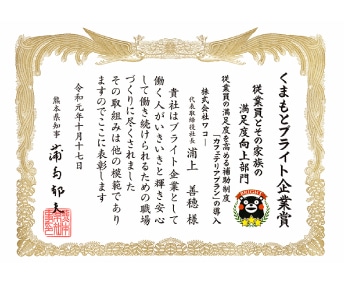 くまもとブライト企業賞
従業員とその家族の
満足度向上部門
従業員の満足度を高める補助制度
「カフェテリアプラン」の導入
株式会社ワコー
代表取締役社長 浦上 善穂 様
貴社はブライト企業として
働く人がいきいきと輝き安心
して働き続けられるための職場
づくりに尽くされました
その取組みは他の模範であり
ますのでここに表彰します
令和元年十月十七日
熊本県知事 蒲島郁夫
BRIGHT